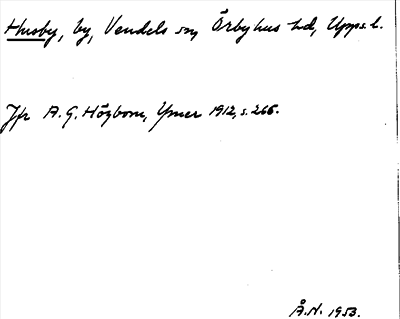 Husby, by, Vendels sn, Örbyhus hd, Upps. l.
Jfr A. G. Högbom, Ymer 1912, s. 266.
Å. N. 1953.